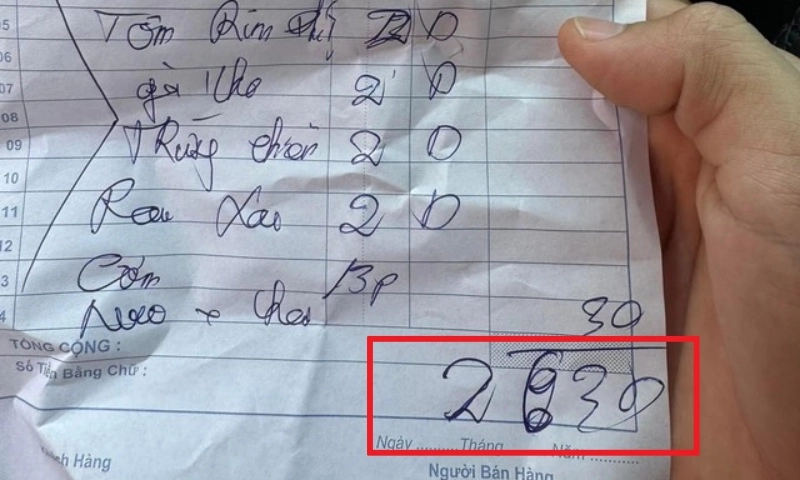 05 Tôm Rim 2 D
06
07 gà kho 2 D
08
09 Trứng chiên 2 D
10
11 Rau Xào 2 D
12
3 Cơm 13p
4 30
TỔNG CỘNG :
Số Tiền Bằng Chữ : 2 630
Ngày .......... Tháng .......... Năm ..........
h Hàng Người Bán Hàng